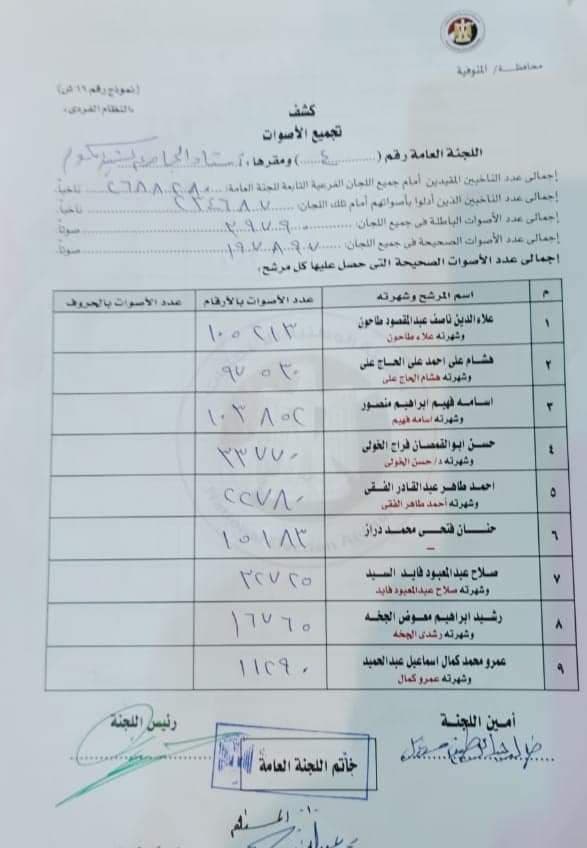 محافظة/ المنوفية
(نموذج رقم ١٦ ص)
«النظام الفردى»
كشف
تجميع الأصوات
اللجنة العامة رقم (....٤....) ومقرها:
إجمالى عدد الناخبين المقيدين أمام جميع اللجان الفرعية التابعة للجنة العامة: ناخباً.
إجمالى عدد الناخبين الذين أدلوا بأصواتهم أمام تلك اللجان ٢٢٤٦٨٠٧ ناخباً
إجمالى عدد الأصوات الباطلة فى جميع اللجان ٢٩٧٩٠ صوتاً
إجمالى عدد الأصوات الصحيحة فى جميع اللجان ١٩٧٨٩٧ صوتاً
إجمالى عدد الأصوات الصحيحة التى حصل عليها كل مرشح:
م اسم المرشح وشهرته عدد الأصوات بالأرقام عدد الأصوات بالحروف
١ علاء الدين ناصف عبدالمقصود طاحون ١٠٠٢١٣
وشهرته علاء طاحون
٢ هشام على احمد على الحاج على ٩٧٠٣٠
وشهرته هشام الحاج على
٣ اسامه فهيم ابراهيم منصور ١٠٣٨٥٢
وشهرته اسامه فهيم
٤ حسن ابوالقمصان فراج الخولى ٣٣٧٧٠
وشهرته د/ حسن الخولى
٥ احمد طاهر عبدالقادر الفقى ٢٢٧٨٠
وشهرته أحمد طاهر الفقى
٦ حنان فتحى محمد دراز ١٠١٨٣
–
٧ صلاح عبدالمعبود فايد السيد ٣٢٧٢٥
وشهرته صلاح عبدالمعبود فايد
٨ رشيد ابراهيم معوض الجخه ١٦٧٦٠
وشهرته رشدى الجخه
٩ عمرو محمد كمال اسماعيل عبدالحميد ١١٢٩٠
وشهرته عمرو كمال
أمين اللجنة
رئيس اللجنة
خاتم اللجنة العامة
المستلم